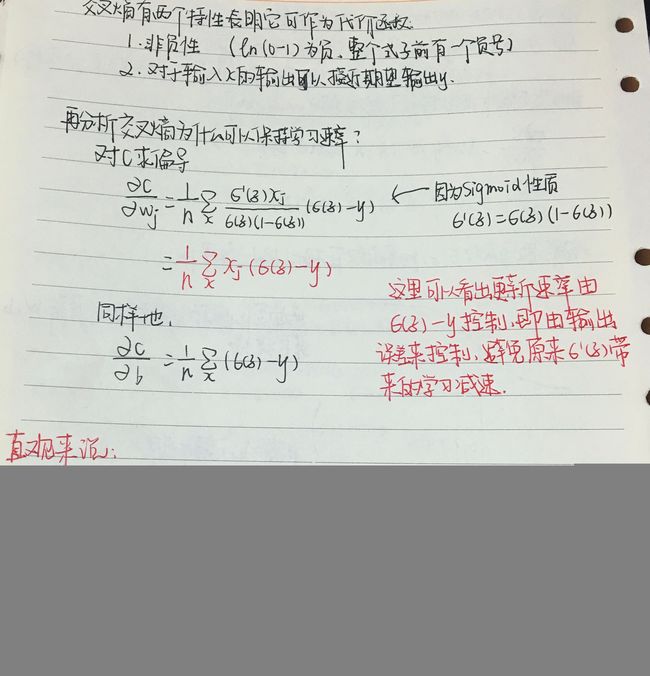 交叉熵有两个特性表明它可作为代价函数
1. 非负性 (ln(0-1)为负, 整个式子前有一个负号)
2. 对于输入x的输出可以接近期望输出y.
再分析交叉熵为什么可以保持学习速率?
对C求偏导
∂C/∂wj = 1/n Σx σ'(z)xj/σ(z)(1-σ(z)) (σ(z)-y) ← 因为Sigmoid性质
σ'(z)=σ(z)(1-σ(z))
= 1/n Σx xj(σ(z)-y)
同样地,
∂C/∂b = 1/n Σx (σ(z)-y)
这里可以看出更新速率由
σ(z)-y控制,即由输出
误差来控制,避免原来σ'(z)带
来的学习减速.
直观来说: